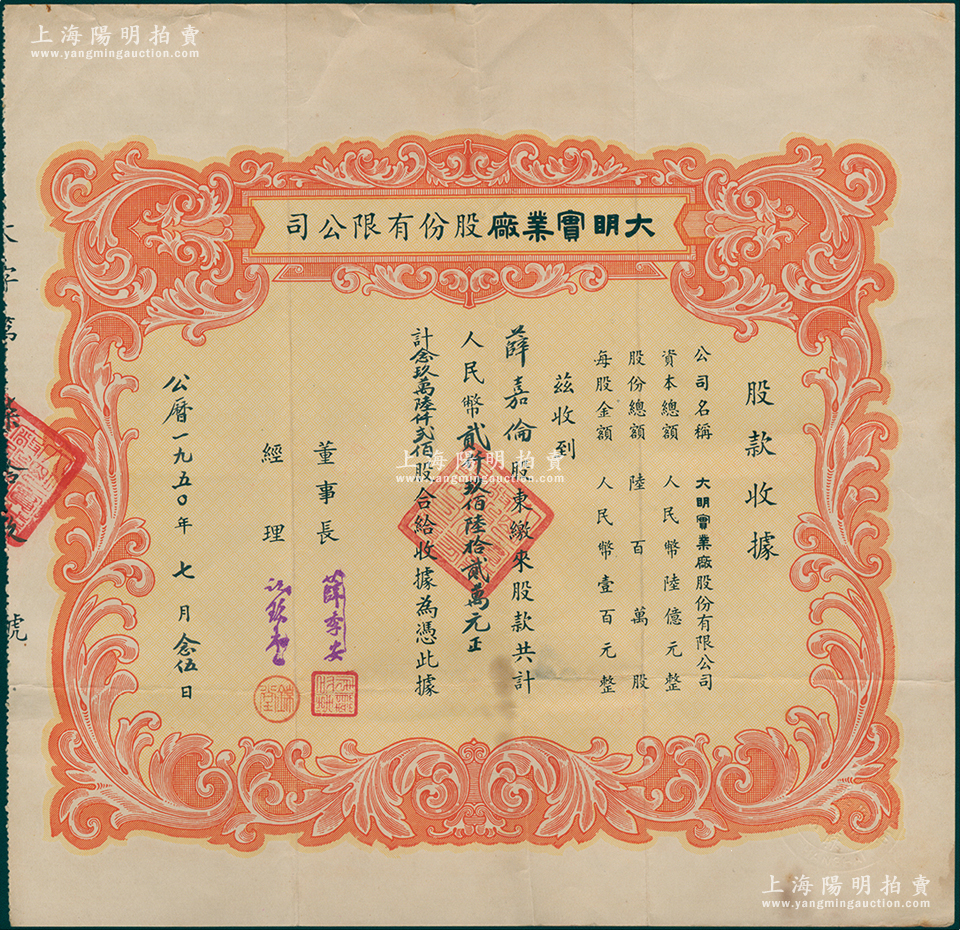 上海陽明拍賣
www.yangmingauction.com
大明實業廠股份有限公司
股款收據
公司名稱 大明實業廠股份有限公司
資本總額 人民幣陸億元整
股份總額 陸百萬股
每股金額 人民幣壹百元整
茲收到
薛嘉倫股東繳來股款共計
人民幣貳仟玖佰陸拾貳萬元正
計念玖萬陸仟貳佰股合給收據為憑此據
董事長 薛季安
經理
公曆一九五〇年七月念伍日
字第
號
上海陽明拍賣
www.yangmingauction.com
上海陽明拍賣
www.yangmingauction.com